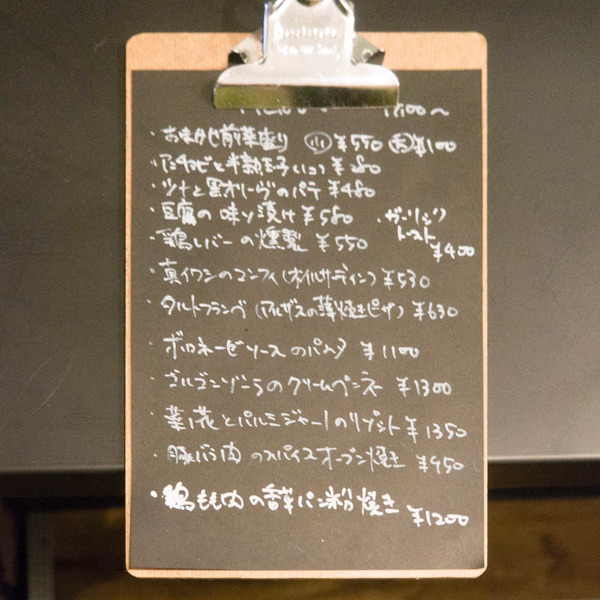 17:00〜
・お味見前菜盛り ㊙小 ¥550 ¥1100
・アンチョビと半熟玉子(1コ) ¥280
・ツナと黒オリーヴのパテ ¥480
・豆腐の味噌漬け ¥580
・ガーリックトースト ¥400
・鶏レバーの燻製 ¥550
・真イワシのコンフィ(オイルサーディン) ¥530
・タルトフランベ(アルザスの薄焼きピザ) ¥630
・ボロネーゼソースのパスタ ¥1100
・ゴルゴンゾーラのクリームペンネー ¥1300
・菜花とパルミジャーノのリゾット ¥1350
・豚バラ肉のスパイスオーブン焼き ¥950
・鶏もも肉の香草パン粉焼き ¥1200